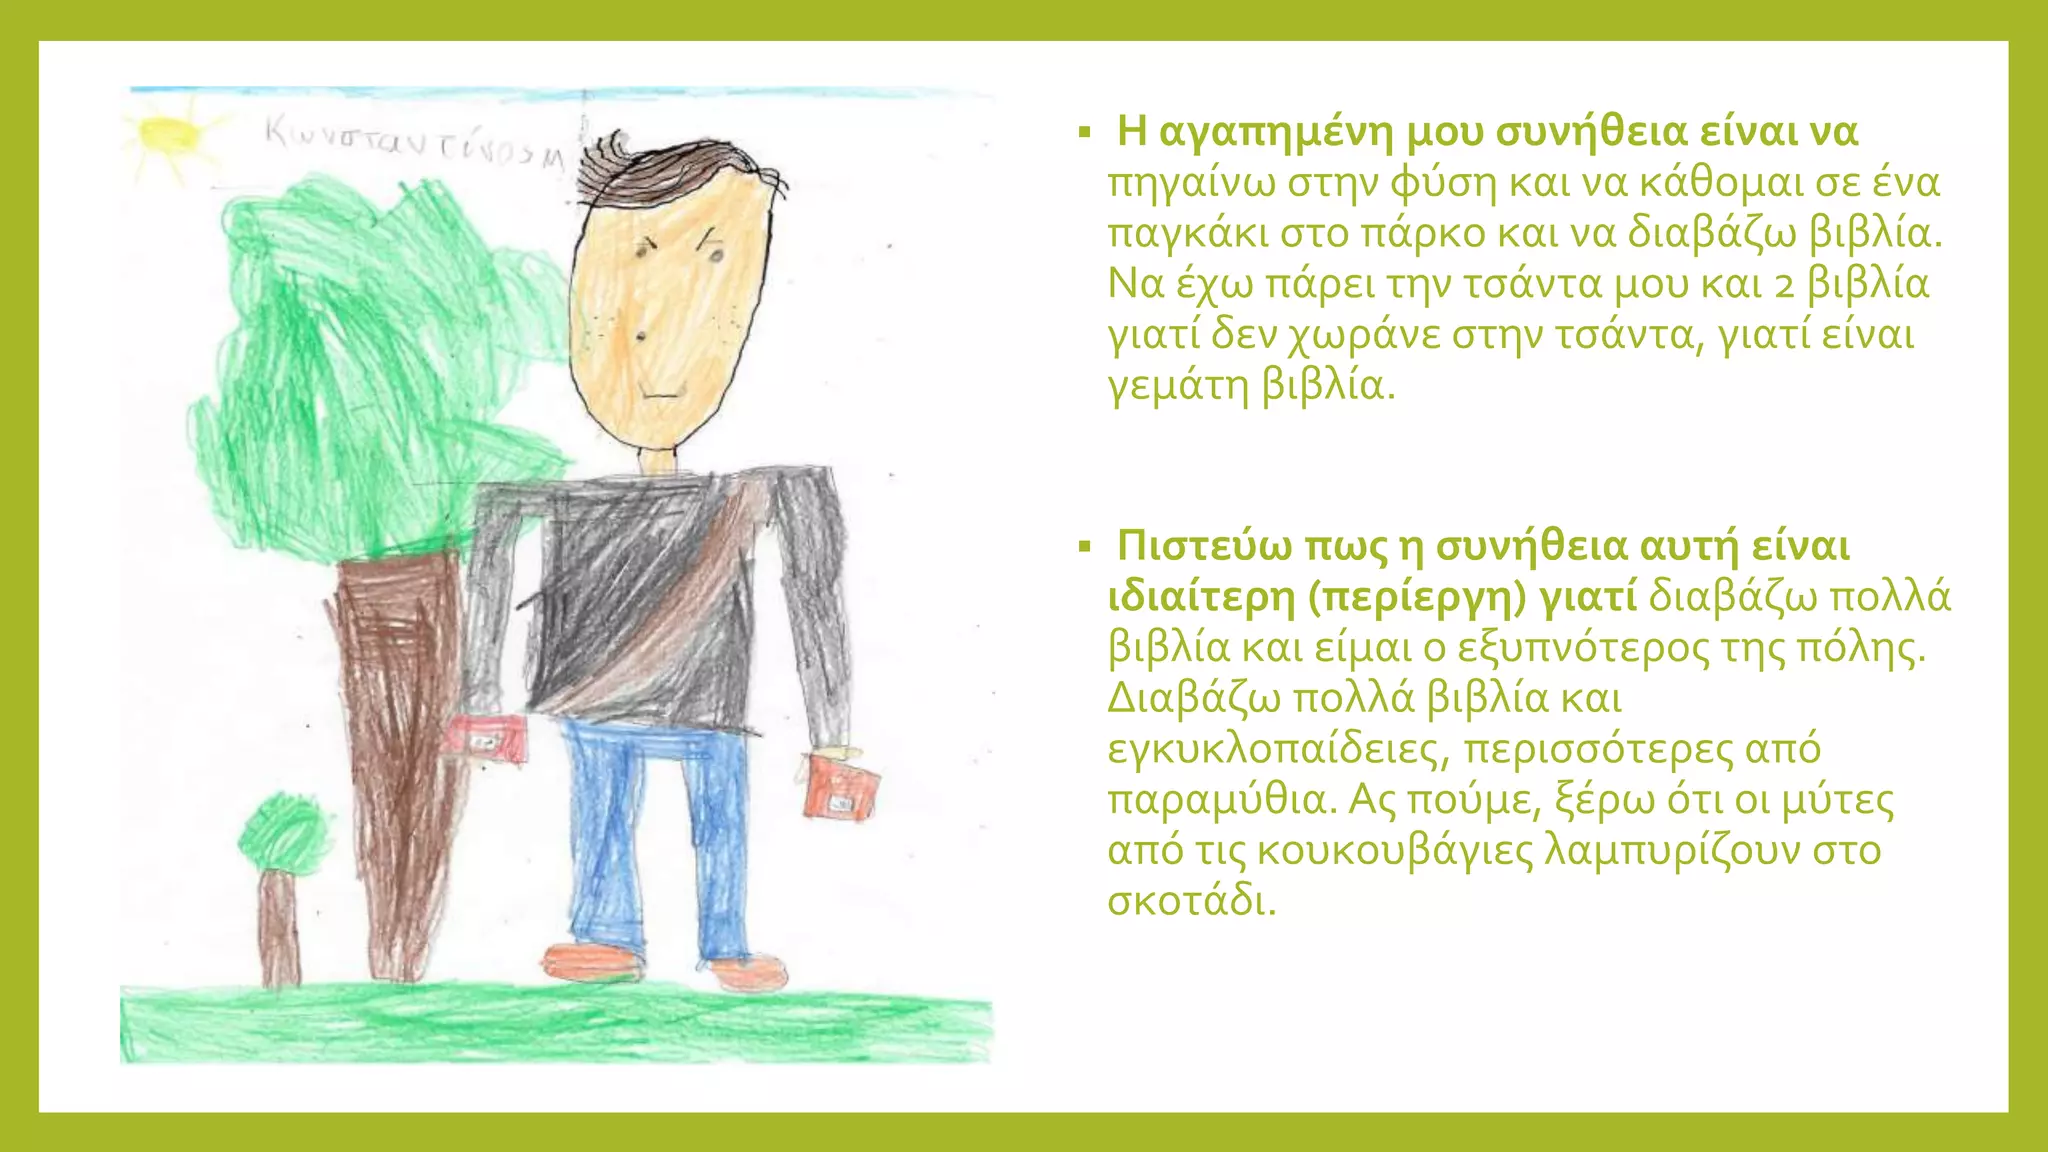 Κωνσταντίνος Μ
▪ Η αγαπημένη μου συνήθεια είναι να
πηγαίνω στην φύση και να κάθομαι σε ένα
παγκάκι στο πάρκο και να διαβάζω βιβλία.
Να έχω πάρει την τσάντα μου και 2 βιβλία
γιατί δεν χωράνε στην τσάντα, γιατί είναι
γεμάτη βιβλία.
▪ Πιστεύω πως η συνήθεια αυτή είναι
ιδιαίτερη (περίεργη) γιατί διαβάζω πολλά
βιβλία και είμαι ο εξυπνότερος της πόλης.
Διαβάζω πολλά βιβλία και
εγκυκλοπαίδειες, περισσότερες από
παραμύθια. Ας πούμε, ξέρω ότι οι μύτες
από τις κουκουβάγιες λαμπυρίζουν στο
σκοτάδι.